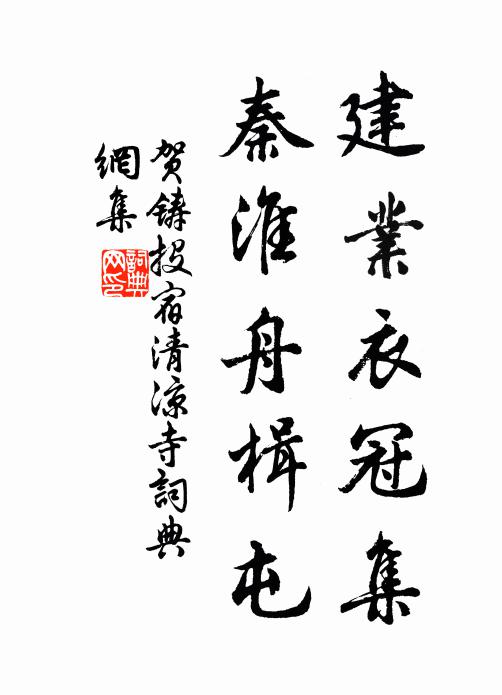 建業衣冠集
秦淮舟楫屯
贺鑄投宿清涼寺詞典
網集
詞典網印